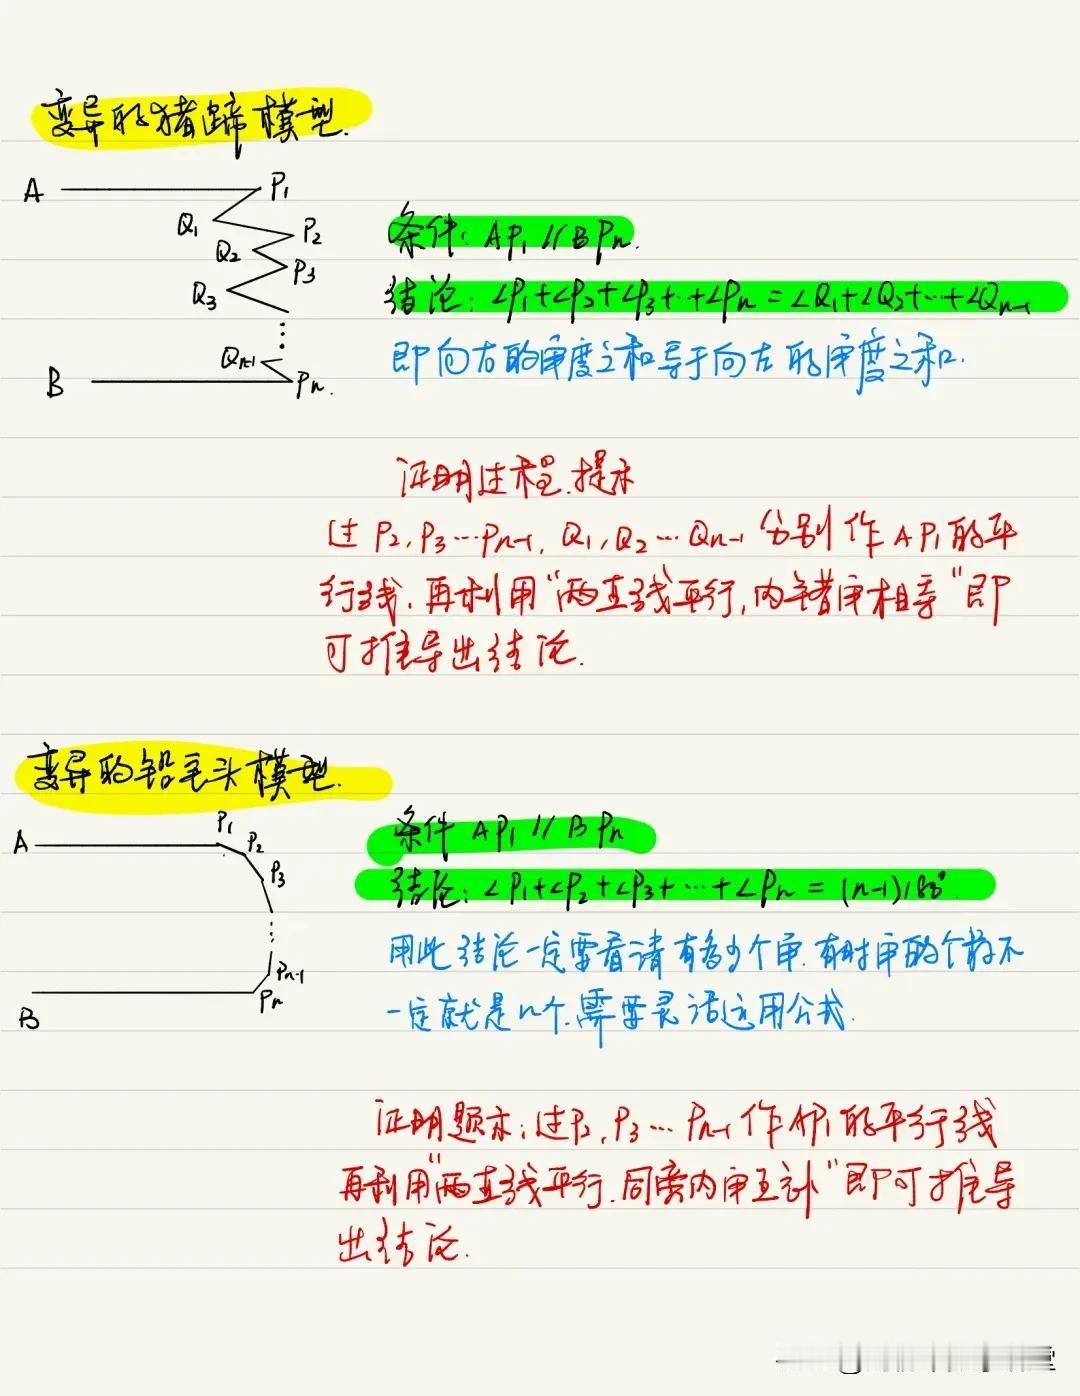 变异的猪蹄模型.
A
P₁
Q₁
P₂
Q₂
P₃
Q₃
Qn-1
B
Pn.
条件: AP₁ // BPn.
结论: ∠P₁+∠P₂+∠P₃+…+∠Pn = ∠Q₁+∠Q₂+…+∠Qn-1
即向右的角度之和等于向左的角度之和.
证明过程.提示
过 P₂, P₃…Pn-1, Q₁, Q₂…Qn-1 分别作AP₁的平
行线. 再利用"两直线平行,内错角相等"即
可推导出结论.
变异的铅笔头模型.
A
P₁
P₂
P₃
Pn-1
Pn
B
条件 AP₁ // BPn
结论: ∠P₁+∠P₂+∠P₃+…+∠Pn = (n-1)180°.
用此结论一定要看清有多少个角.有时角的个数不
一定就是n个.需要灵活运用公式.
证明题示:过P₂,P₃…Pn-1作AP₁的平行线
再利用"两直线平行.同旁内角互补"即可推导
出结论.